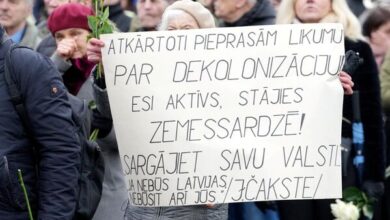 ATKĀRTOTI PIEPRASĀM LIKUMU
PAR DEKOLONIZĀCIJU
ESI AKTĪVS, STĀJIES
ZEMESSARDZĒ!
SARGĀJIET SAVU VALSTI,
"JA NEBŪS LATVIJAS,
NEBŪSIT ARĪ JŪS" /J.ČAKSTE/